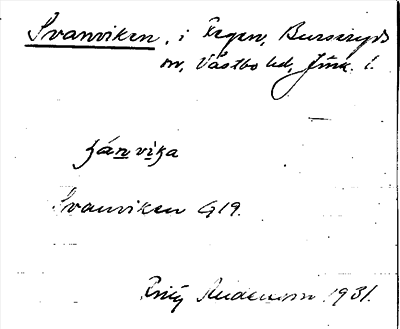 Svanviken, i Fegen, Burseryds
sn, Västbo hd, Jönk. l.
svánvika
Svanviken G19.
Andersson 1931.